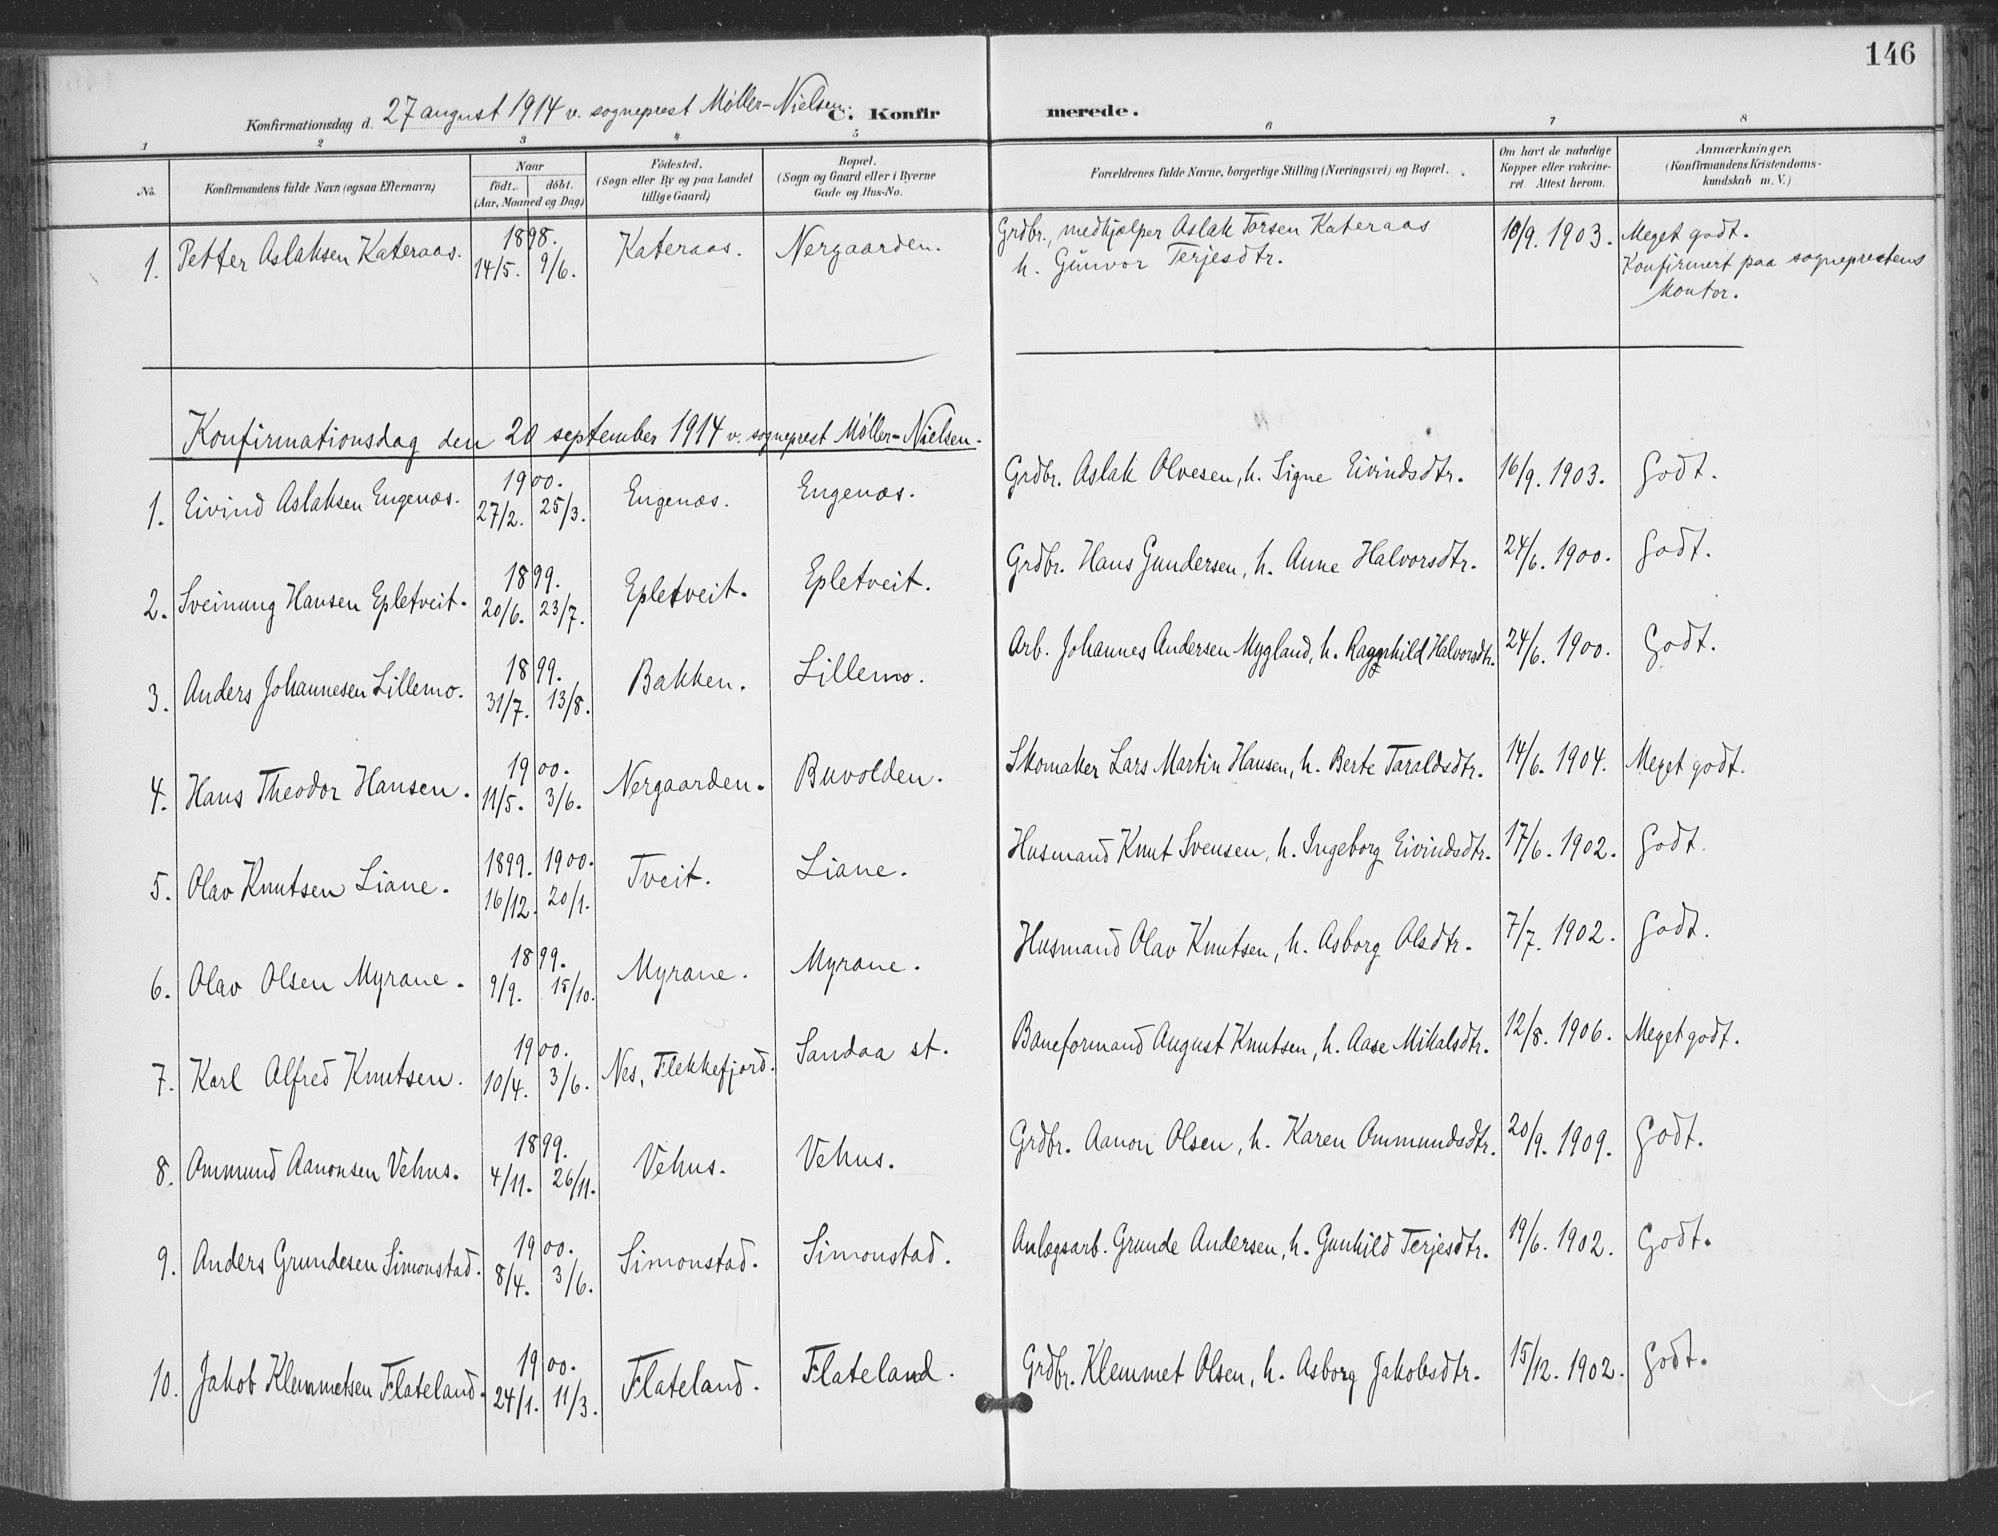 146
Konfirmationsdag d. 27 august 1914 v. sogneprest Møller-Nielsen. C. Konfirmerede.
1 2 3 4 5 6 7 8
No. | Konfirmandens fulde Navn (ogsaa Efternavn) | Naar født. døbt. (Aar, Maaned og Dag) | Fødested. (Sogn eller By og paa Landet tillige Gaard) | Bopæl. (Sogn og Gaard eller i Byerne Gade og Hus-No. | Forældrenes fulde Navne, borgerlige Stilling (Næringsvei) og Bopæl. | Om havt de naturlige Kopper eller vakcineret Attest herom. | Anmærkninger. (Konfirmandens Kristendomskundskab m. V.)
1. Petter Aslaksen Kateraas. 1898. 14/5. 9/6. Kateraas. Nergaarden. Grdbr., medhjælper Aslak Torsen Kateraas 10/9. 1903. Meget godt.
h. Gunvor Terjesdtr. Konfirmert paa sogneprestens
kontor.
Konfirmationsdag den 20 september 1914 v. sogneprest Møller-Nielsen.
1. Eivind Aslaksen Engenæs. 1900. 27/2. 25/3. Engenæs. Engenæs. Grdbr. Aslak Olvesen, h. Signe Eivindsdtr. 16/9. 1903. Godt.
2. Sveinung Hansen Epletveit. 1899. 20/6. 23/7. Epletveit. Epletveit. Grdbr. Hans Gundersen, h. Anne Halvorsdtr. 24/6. 1900. Godt.
3. Anders Johannesen Lillemo. 1899. 31/7. 13/8. Bakken. Lillemo. Arb. Johannes Andersen Mygland, h. Ragnhild Halvorsdtr. 24/6. 1900. Godt.
4. Hans Theodor Hansen. 1900. 11/5. 3/6. Nergaarden. Buvolden. Skomaker Lars Martin Hansen, h. Berte Taraldsdtr. 14/6. 1904. Meget godt.
5. Olav Knutsen Liane. 1899. 1900. 16/12. 20/1. Tveit. Liane. Husmand Knut Svensen, h. Ingeborg Eivindsdtr. 17/6. 1902. Godt.
6. Olav Olsen Myrane. 1899. 9/9. 15/10. Myrane. Myrane. Husmand Olav Knutsen, h. Asborg Olsdtr. 7/7. 1902. Godt.
7. Karl Alfred Knutsen. 1900. 10/4. 3/6. Nes, Flekkefjord. Sandaa st. Baneformand August Knutsen, h. Aase Mikalsdtr. 12/8. 1906. Meget godt.
8. Ommund Aanonsen Vehus. 1899. 4/11. 26/11. Vehus. Vehus. Grdbr. Aanon Olsen, h. Karen Ommundsdtr. 20/9. 1909. Godt.
9. Anders Grundesen Simonstad. 1900. 8/4. 3/6. Simonstad. Simonstad. Anlægsarb. Grunde Andersen, h. Gunhild Terjesdtr. 19/6. 1902. Godt.
10. Jakob Klemmetsen Flateland. 1900. 24/1. 11/3. Flateland. Flateland. Grdbr. Klemmet Olsen, h. Asborg Jakobsdtr. 15/12. 1902. Godt.